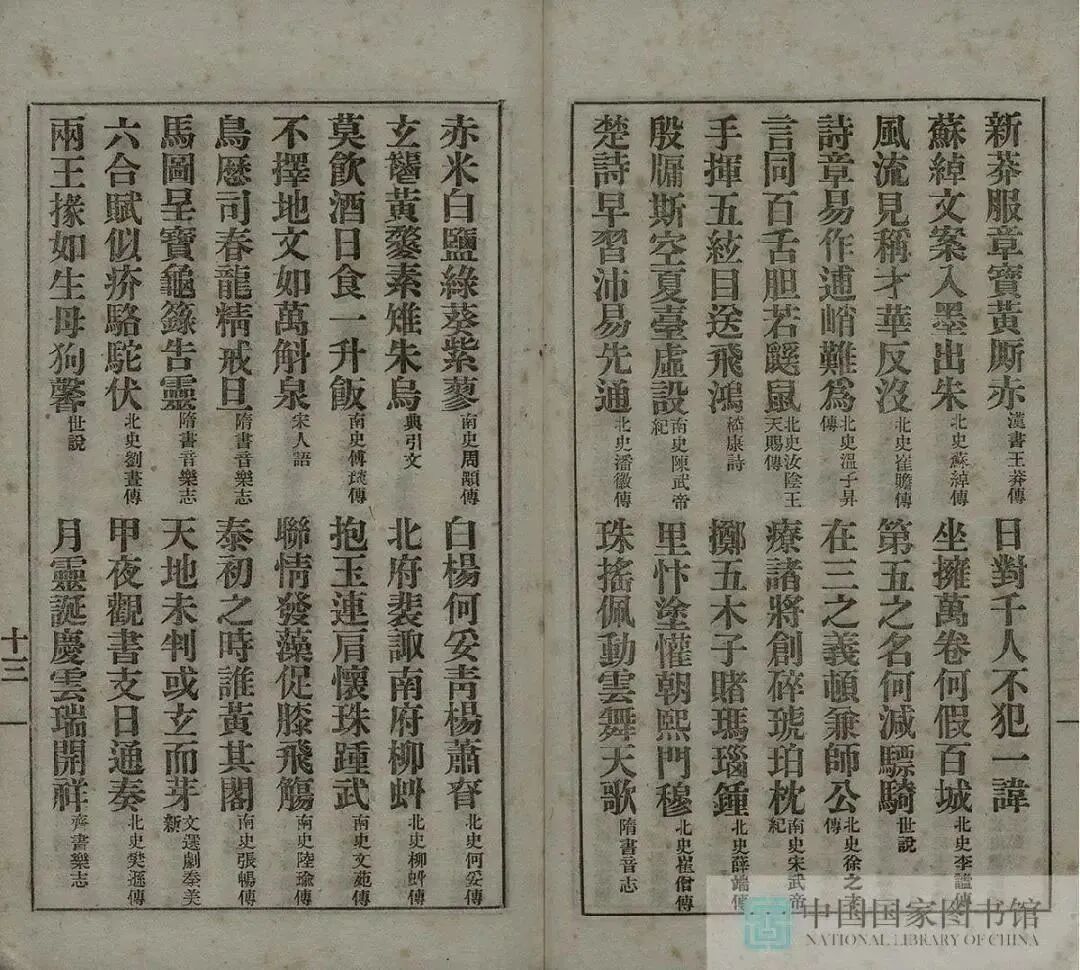 新莽服章寶黃厮赤 漢書王莽傳 日對千人不犯一諱
蘇綽文案入墨出朱 北史蘇綽傳 坐擁萬卷何假百城 北史李謐傳
風流見稱才華反沒 北史崔贍傳 第五之名何減驃騎 世說
詩章易作逋峭難爲 北史溫子昇傳 在三之義頓兼師公 北史徐之才傳
言同百舌胆若鼷鼠 北史汝陰王天賜傳 療諸將創碎琥珀枕 南史宋武帝紀
手揮五絃目送飛鴻 嵇康詩 擲五木子賭瑪瑙鍾 北史薛端傳
殷牖斯空夏臺虛設 南史陳武帝紀 里忭塗懽朝熙門穆 北史崔僧傳
楚詩早習沛易先通 北史潘徽傳 珠搖佩動雲舞天歌 隋書音志
赤米白鹽綠葵紫蓼 南史周顒傳 白楊何妥青楊蕭眘 北史何妥傳
玄秬黃鍪素雉朱烏 典引文 北府裴諏南府柳虯 北史柳虯傳
莫飲酒日食一升飯 南史傅琰傳 抱玉連肩懷珠踵武 南史文苑傳
不擇地文如萬斛泉 宋人語 聯情發藻促膝飛觴 南史陸瑜傳
鳥歷司春龍精戒旦 隋書音樂志 泰初之時誰黃其閣 南史張暢傳
馬圖呈寶龜籙告靈 隋書音樂志 天地未判或玄而芽 文選劇秦美新
六合賦似疥駱駝伏 北史劉晝傳 甲夜觀書支日通奏 北史樊遜傳
兩王掾如生母狗馨 世說 月靈誕慶雲瑞開祥 齊書樂志
十三
中国国家图书馆
NATIONAL LIBRARY OF CHINA